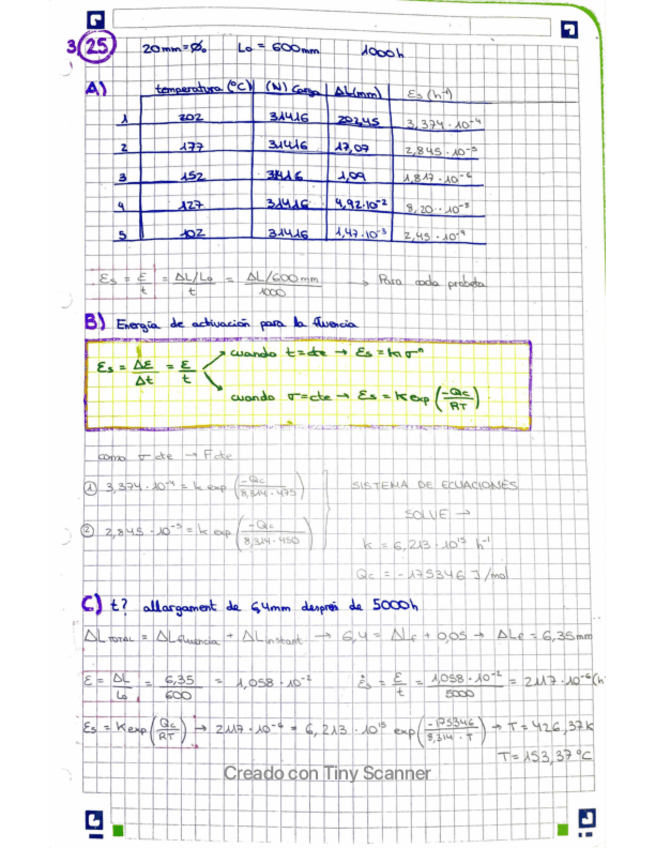 3 25 20mm=Ø₀ L₀ = 600mm 1000h
A) temperatura (ºC) (N) Carga ΔL(mm) Ɛs (h⁻¹)
1 202 31416 202,45 3,374·10⁻⁴
2 177 31416 17,07 2,845·10⁻⁵
3 152 31416 1,09 1,817·10⁻⁶
4 127 31416 4,92·10⁻² 8,20·10⁻⁸
5 102 31416 1,47·10⁻³ 2,45·10⁻⁹
Ɛs = Ɛ/t = ΔL/L₀/t = ΔL/600mm/1000 → Para cada probeta
B) Energía de activación para la fluencia
Ɛs = ΔƐ/Δt = Ɛ/t
cuando t=cte → Ɛs = kσⁿ
cuando σ=cte → Ɛs = K exp(-Qc/RT)
como σ cte → F cte
① 3,374·10⁻⁴ = k exp(-Qc/8,314·475)
② 2,845·10⁻⁵ = k exp(-Qc/8,314·450)
SISTEMA DE ECUACIONES
SOLVE →
k = 6,213·10¹⁵ h⁻¹
Qc = -175346 J/mol
C) t? allargament de 6,4mm després de 5000h
ΔL TOTAL = ΔL fluencia + ΔL instant → 6,4 = ΔLf + 0,05 → ΔLf = 6,35mm
Ɛ = ΔL/L₀ = 6,35/600 = 1,058·10⁻² Ɛ̇s = Ɛ/t = 1,058·10⁻²/5000 = 2,117·10⁻⁶(h
Ɛs = K exp(Qc/RT) → 2,117·10⁻⁶ = 6,213·10¹⁵ exp(-175346/8,314·T) → T = 426,37K
T = 153,37ºC
Creado con Tiny Scanner